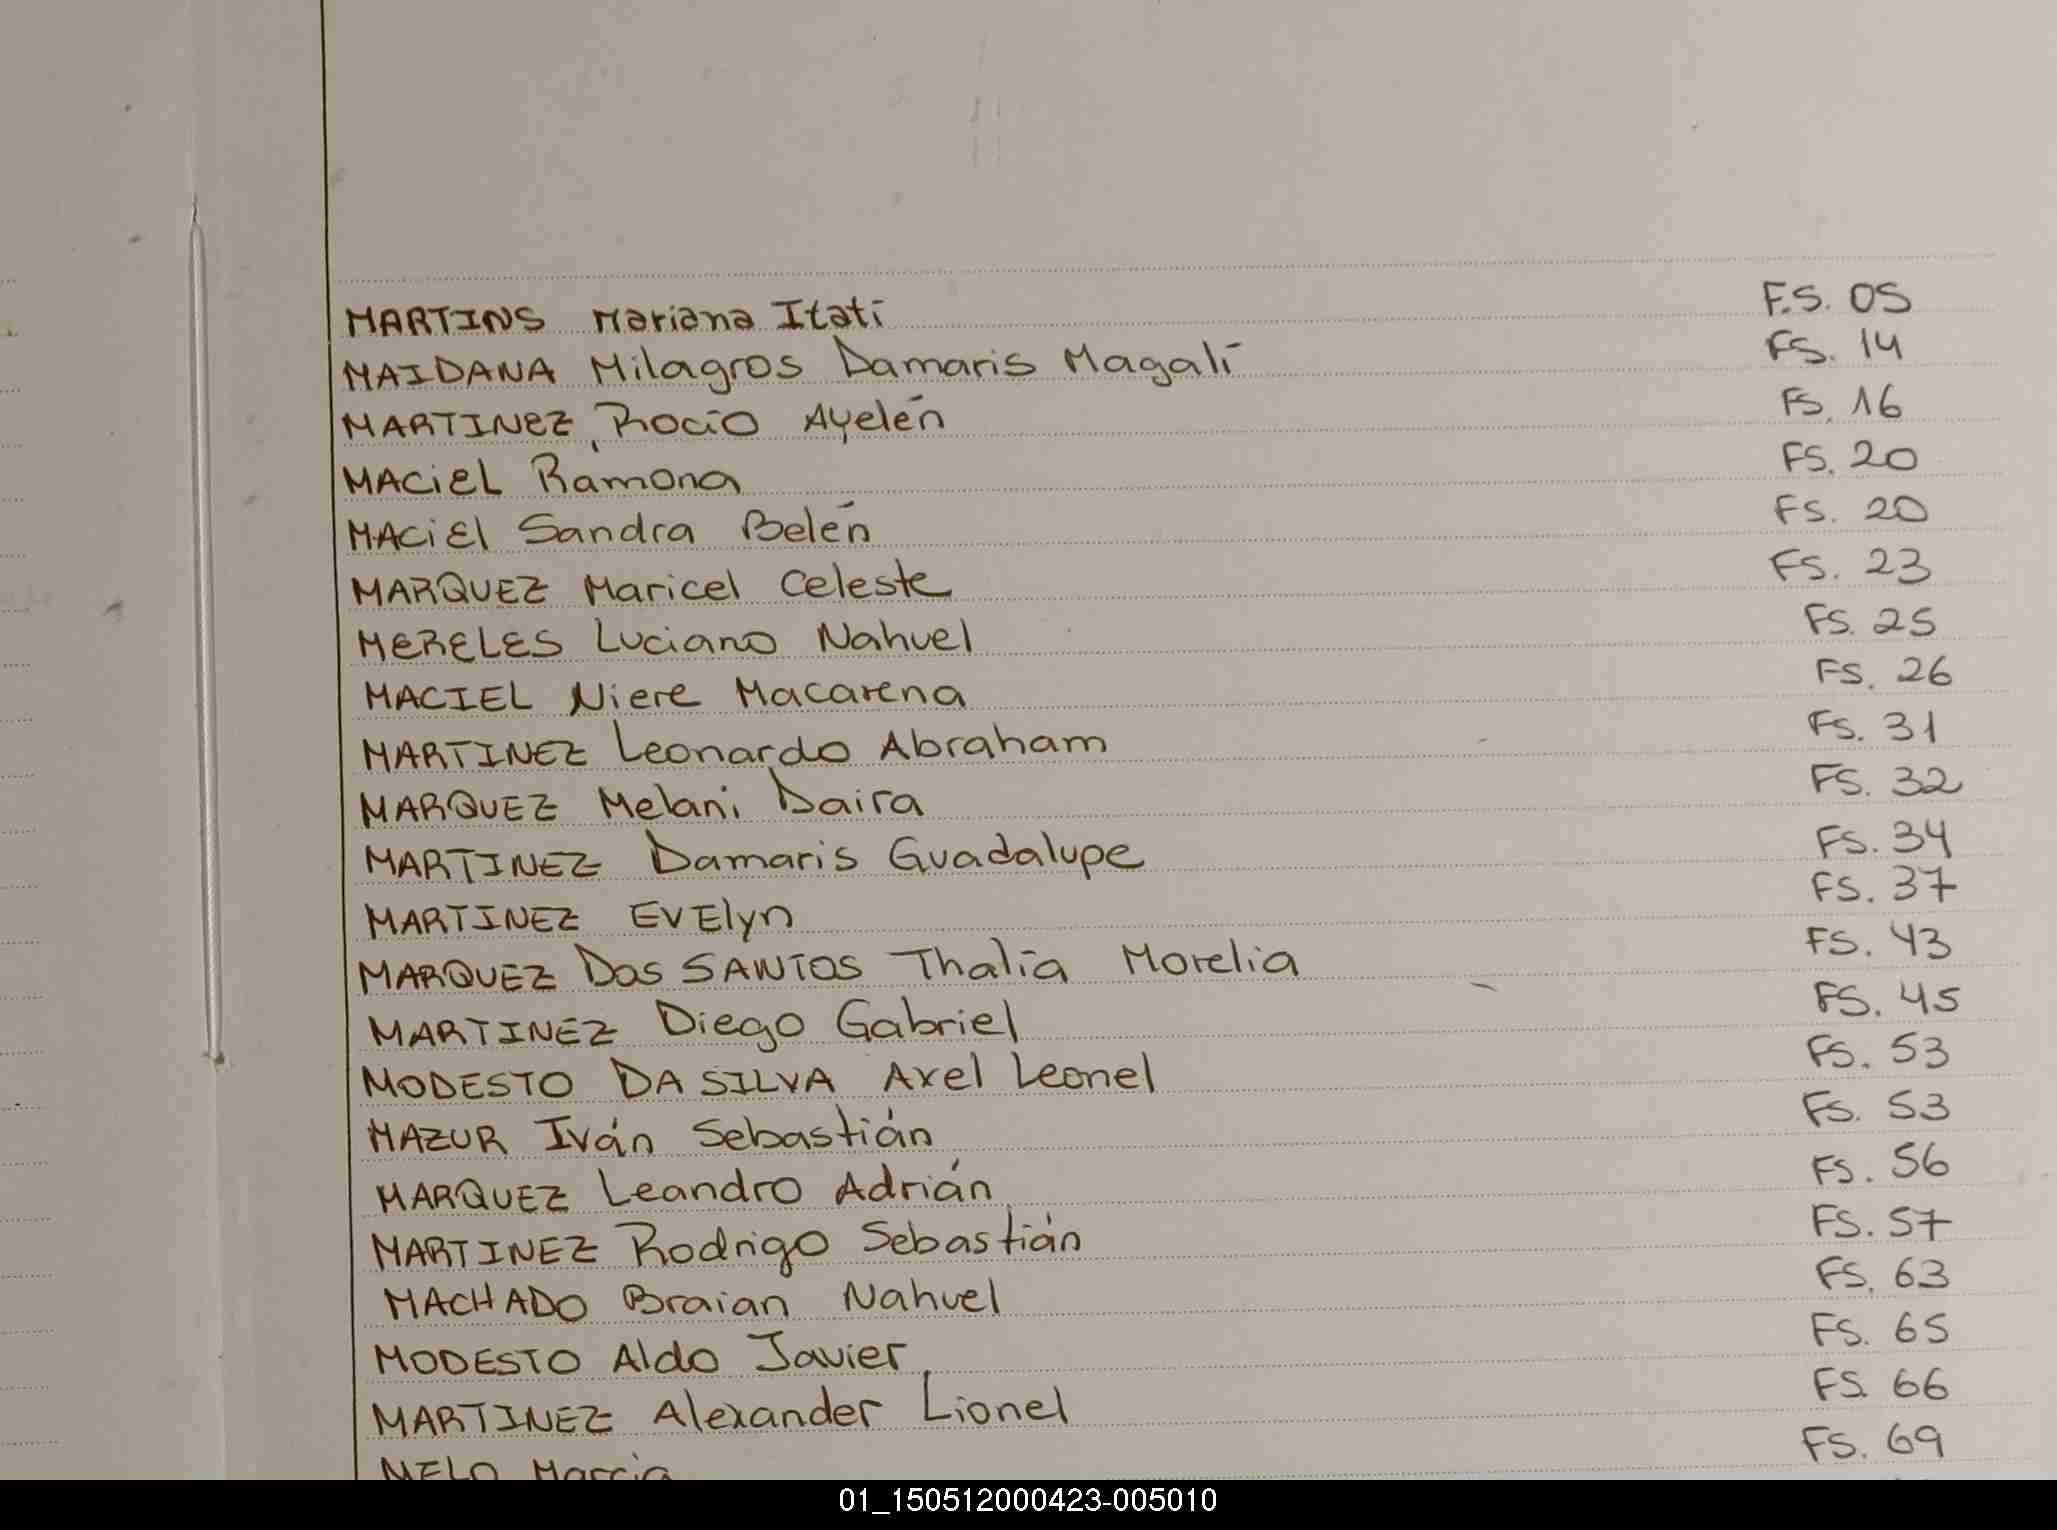 MARTINS Mariana Itatí FS. 05
MAIDANA Milagros Damaris Magalí FS. 14
MARTINEZ, Rocío Ayelén FS. 16
MACiEL Ramona FS. 20
MACiEl Sandra Belén FS. 20
MARQUEZ Maricel Celeste FS. 23
MERELES Luciano Nahuel FS. 25
MACIEL Niere Macarena FS. 26
MARTINEZ Leonardo Abraham FS. 31
MARQUEZ Melani Daira FS. 32
MARTINEZ Damaris Guadalupe FS. 34
MARTINEZ EVElyn FS. 37
MARQUEZ Dos SANTOS Thalía Morelia FS. 43
MARTINEZ Diego Gabriel FS. 45
MODESTO DA SILVA Axel Leonel FS. 53
MAZUR Iván Sebastián FS. 53
MARQUEZ Leandro Adrián FS. 56
MARTINEZ Rodrigo Sebastián FS. 57
MACHADO Braian Nahuel FS. 63
MODESTO Aldo Javier FS. 65
MARTINEZ Alexander Lionel FS. 66
MELO Marcia FS. 69
01_150512000423-005010